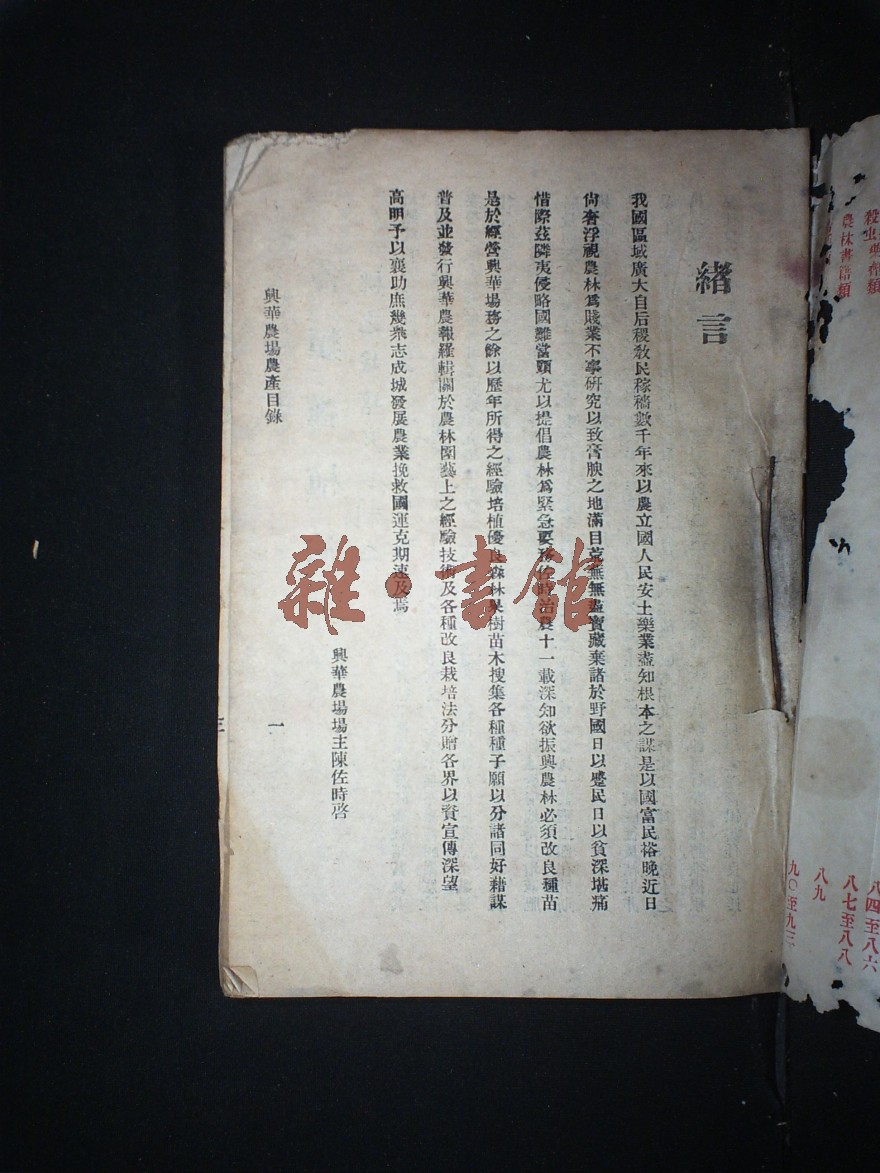 緒言
我國區域廣大自后稷敎民稼穡數千年來以農立國人民安土樂業盡知根本之謀是以國富民裕晚近日
尙奢浮視農林爲賤業不事硏究以致膏腴之地滿目荒蕪無盡寶藏棄諸於野國日以蹙民日以貧深堪痛
惜際茲隣夷侵略國難當頭尤以提倡農林爲緊急要務佐時治農十一載深知欲振興農林必須改良種苗
是於經營興華場務之餘以歷年所得之經驗培植優良森林果樹苗木搜集各種種子願以分諸同好藉謀
普及並發行興華農報羅輯關於農林園藝上之經驗技術及各種改良栽培法分贈各界以資宣傳深望
高明予以襄助庶幾衆志成城發展農業挽救國運克期速及焉
興華農場場主陳佐時啓
興華農場農產目錄
一
雜·書館
農林書籍類
八四至八六
八七至八八
八九
九〇至九三